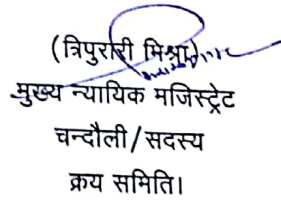 (त्रिपुरारी मिश्रा)
मुख्य न्यायिक मजिस्ट्रेट
चन्दौली/सदस्य
क्रय समिति।